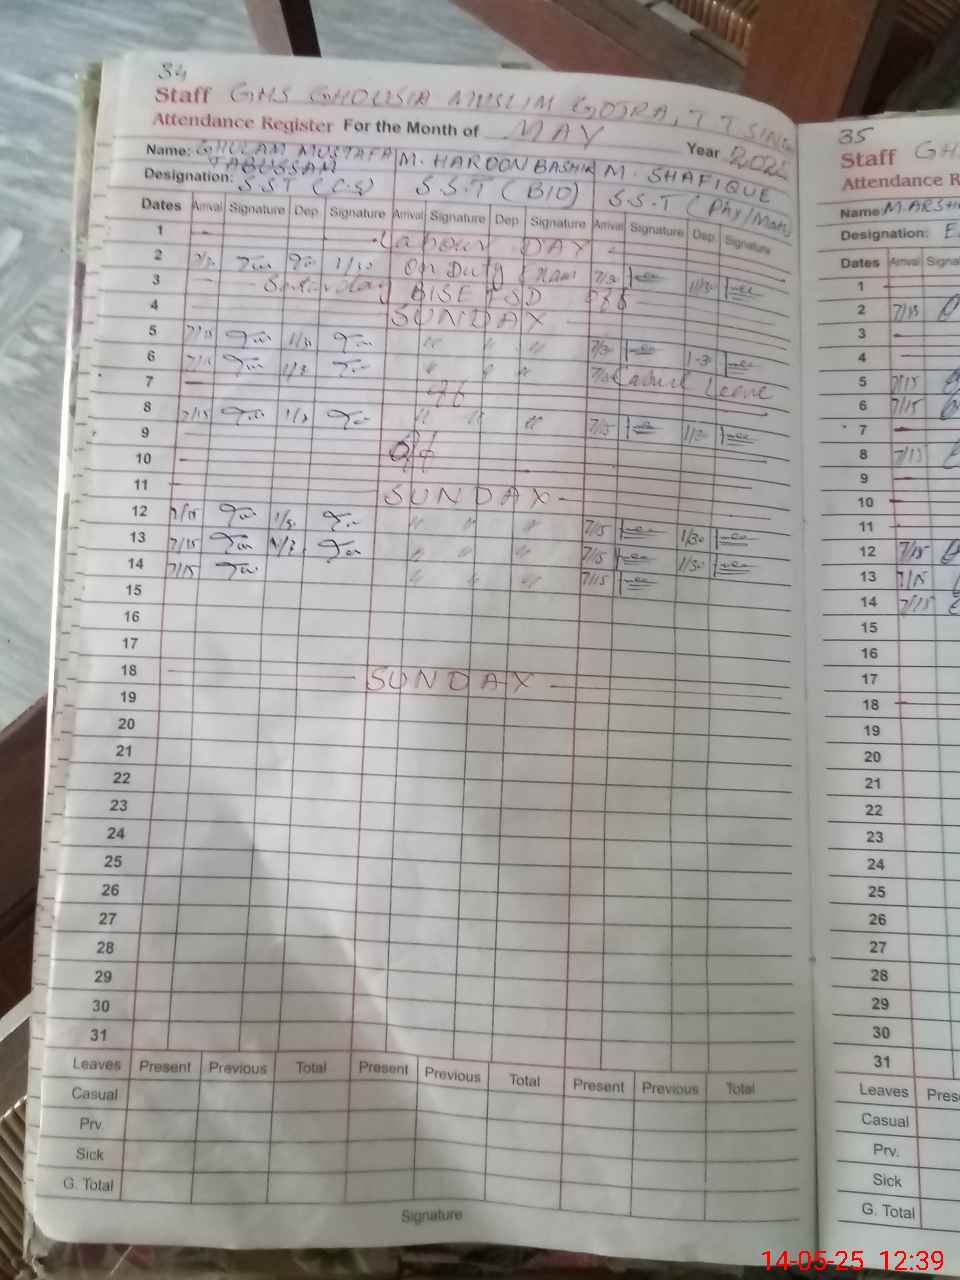 34
Staff GHS GHOUSIA MUSLIM GOJRA, T T SINGH
Attendance Register For the Month of MAY
Year 2025
Name: GHULAM MUSTAFA TABUSSAM M. HAROON BASHIR M. SHAFIQUE
Designation: S.S.T (C.S) S.S.T (BIO) S.S.T (Phy/Math)
Dates Arrival Signature Dep. Signature Arrival Signature Dep Signature Arrival Signature Dep. Signature
1 Labour DAY
2 1/15 On Duty Exam 7/30 1/30
3 Saturday BISE FSD off
4 SUNDAY
5 7/15 1/30 " " " 7/30 1-30
6 7/15 " " " Casual Leave
7 off
8 7/15 " " " 7/15
9
10 off
11 SUNDAY
12 7/15 1/30 " " " 7/15 1/30
13 7/15 " " " 7/15 1/30
14 7/15 " " " 7/15
15
16
17
18 SUNDAY
19
20
21
22
23
24
25
26
27
28
29
30
31
Leaves Present Previous Total Present Previous Total Present Previous Total
Casual
Prv.
Sick
G. Total
Signature
35
Staff GH
Attendance R
Name: M. ARSH
Designation: E
Dates Arrival Signa
1
2 7/15
3
4
5 7/15
6 7/15
7
8 7/15
9
10
11
12 7/15
13 7/15
14 7/15
15
16
17
18
19
20
21
22
23
24
25
26
27
28
29
30
31
Leaves Prese
Casual
Prv.
Sick
G. Total
14-05-25 12:39